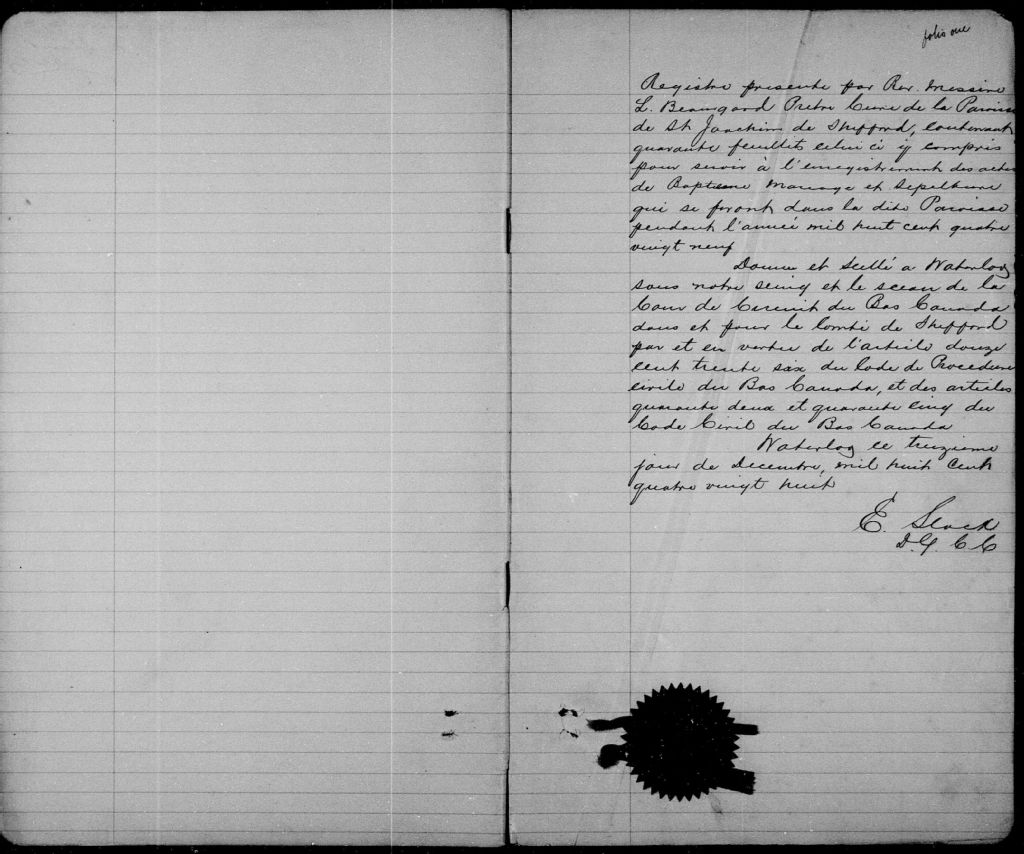 folio one
Registre presente par Rev. Messire
L. Beauregard Pretre Cure de la Paroisse
de St Joachim de Shefford, contenant
quarante feuillets celui ci y compris
pour servir à l'enregistrement des actes
de Bapteme Mariage et Sepulture
qui se feront dans la dite Paroisse
pendant l'année mil huit cent quatre
vingt neuf
Donne et Scellé a Waterloo
sous notre seing et le sceau de la
Cour de Circuit du Bas Canada
dans et pour le Comté de Shefford
par et en vertu de l'article douze
cent trente six du Code de Procedure
Civile du Bas Canada, et des articles
quarante deux et quarante cinq du
Code Civil du Bas Canada
Waterloo ce treizieme
jour de Decembre, mil huit Cent
quatre vingt huit
E. Slack
D. G. C. C.